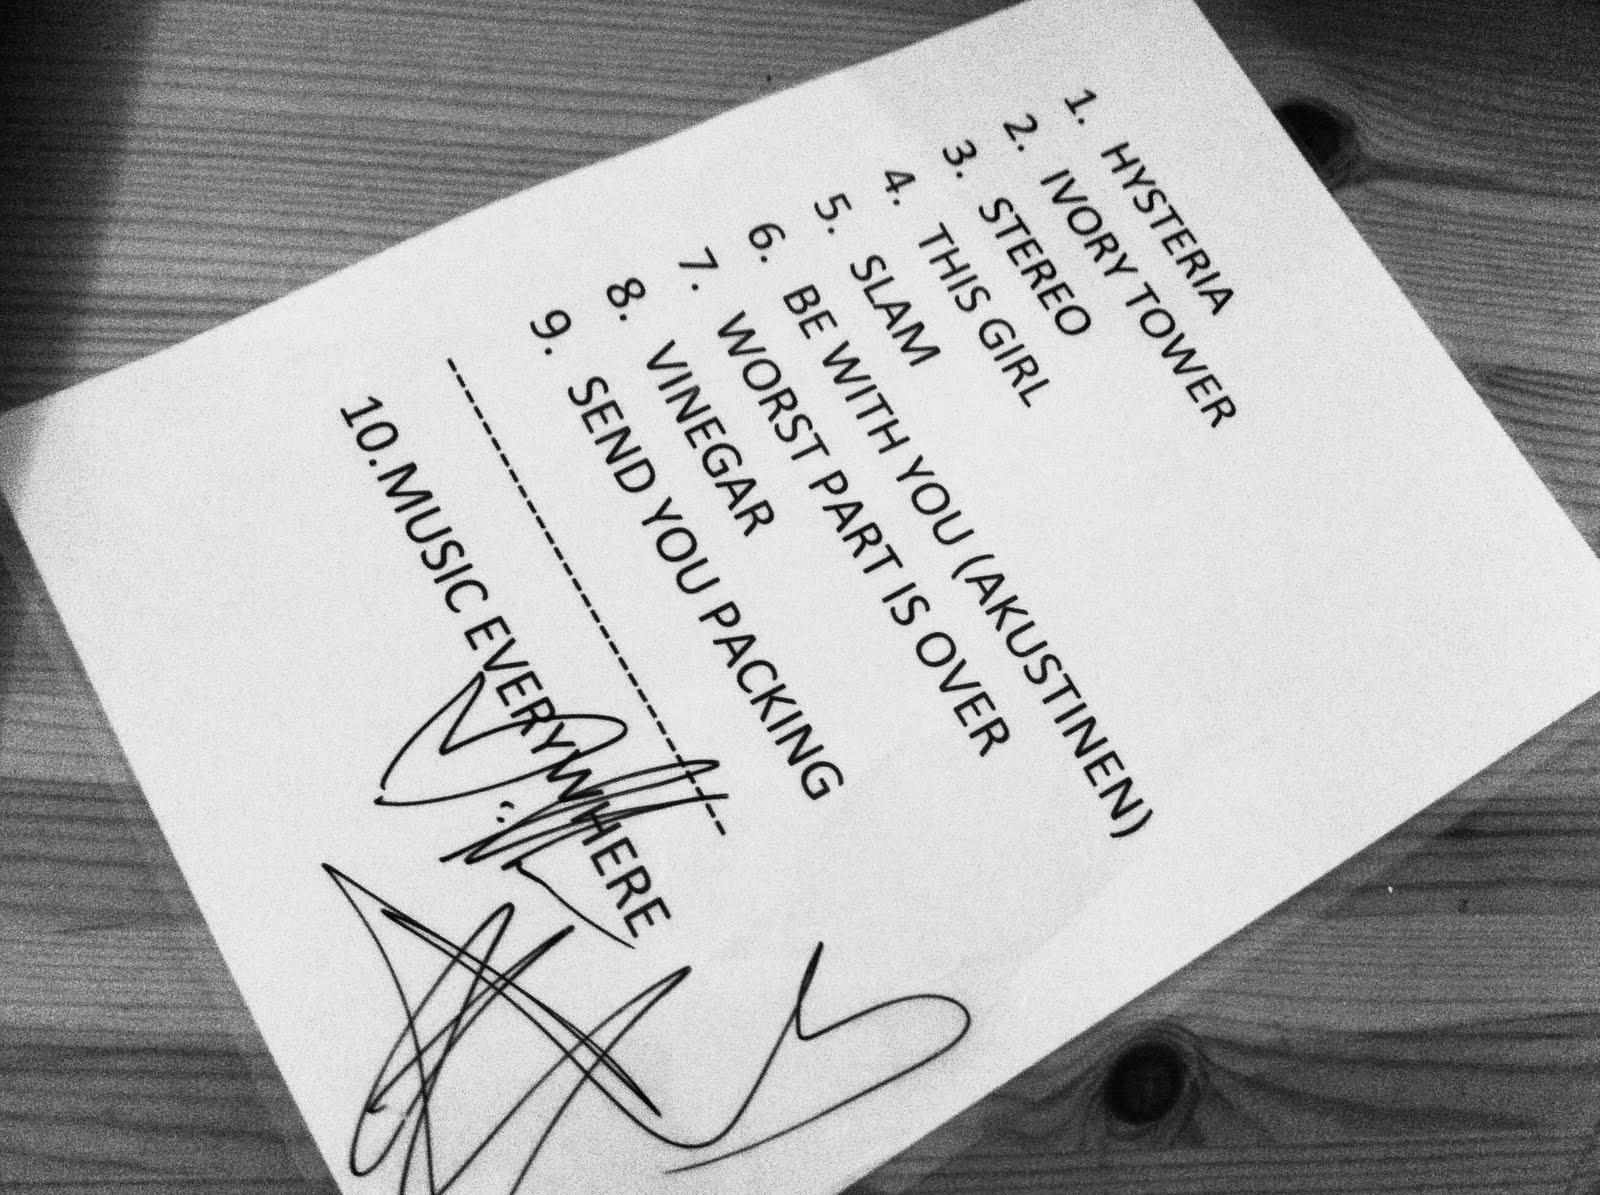 1. HYSTERIA
2. IVORY TOWER
3. STEREO
4. THIS GIRL
5. SLAM
6. BE WITH YOU (AKUSTINEN)
7. WORST PART IS OVER
8. VINEGAR
9. SEND YOU PACKING
10. MUSIC EVERYWHERE